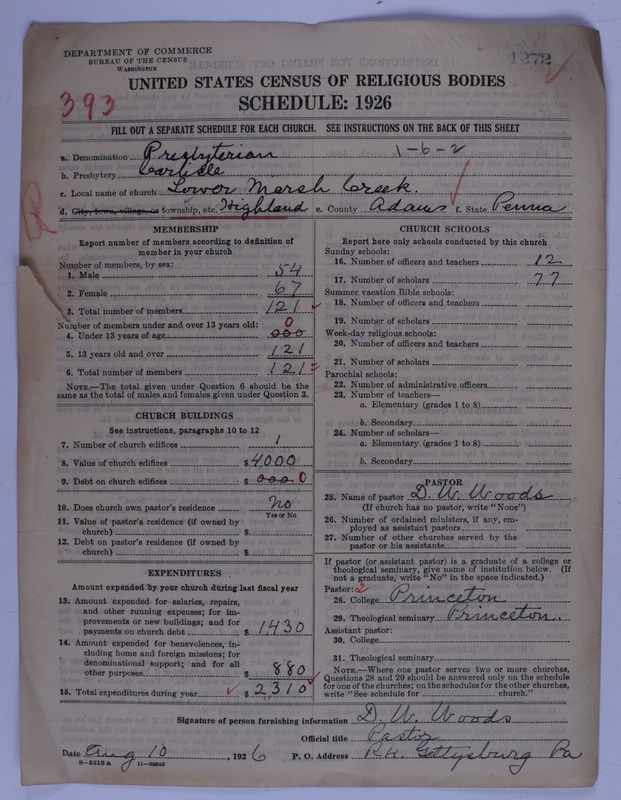 DEPARTMENT OF COMMERCE
BUREAU OF THE CENSUS
WASHINGTON
1272
UNITED STATES CENSUS OF RELIGIOUS BODIES
393
SCHEDULE: 1926
FILL OUT A SEPARATE SCHEDULE FOR EACH CHURCH. SEE INSTRUCTIONS ON THE BACK OF THIS SHEET
a. Denomination Presbyterian 1-6-2
b. Presbytery Carlisle
c. Local name of church Lower Marsh Creek.
d. City, town, village, or township, etc. Highland e. County Adams f. State Penna
MEMBERSHIP
Report number of members according to definition of
member in your church
Number of members, by sex:
1. Male 54
2. Female 67
3. Total number of members 121
Number of members under and over 13 years old: 0
4. Under 13 years of age 000
5. 13 years old and over 121
6. Total number of members 121
NOTE.—The total given under Question 6 should be the
same as the total of males and females given under Question 3.
CHURCH BUILDINGS
See instructions, paragraphs 10 to 12
7. Number of church edifices 1
8. Value of church edifices $ 4000
9. Debt on church edifices $ 000 0
10. Does church own pastor's residence No
Yes or No
11. Value of pastor's residence (if owned by
church) $
12. Debt on pastor's residence (if owned by
church) $
EXPENDITURES
Amount expended by your church during last fiscal year
13. Amount expended for salaries, repairs,
and other running expenses; for im-
provements or new buildings; and for
payments on church debt $ 1430
14. Amount expended for benevolences, in-
cluding home and foreign missions; for
denominational support; and for all
other purposes $ 880
15. Total expenditures during year $ 2310
CHURCH SCHOOLS
Report here only schools conducted by this church
Sunday schools:
16. Number of officers and teachers 12
17. Number of scholars 77
Summer vacation Bible schools:
18. Number of officers and teachers
19. Number of scholars
Week-day religious schools:
20. Number of officers and teachers
21. Number of scholars
Parochial schools:
22. Number of administrative officers
23. Number of teachers—
a. Elementary (grades 1 to 8)
b. Secondary
24. Number of scholars—
a. Elementary (grades 1 to 8)
b. Secondary
PASTOR
25. Name of pastor D. W. Woods
(If church has no pastor, write "None")
26. Number of ordained ministers, if any, em-
ployed as assistant pastors
27. Number of other churches served by the
pastor or his assistants
If pastor (or assistant pastor) is a graduate of a college or
theological seminary, give name of institution below. (If
not a graduate, write "No" in the space indicated.)
Pastor: 2
28. College Princeton
29. Theological seminary Princeton.
Assistant pastor:
30. College
31. Theological seminary
NOTE.—Where one pastor serves two or more churches,
Questions 28 and 29 should be answered only on the schedule
for one of the churches; on the schedules for the other churches,
write "See schedule for church."
Signature of person furnishing information D. W. Woods
Official title Pastor
Date Aug 10, 1926 P. O. Address Gettysburg Pa
8-5318 a